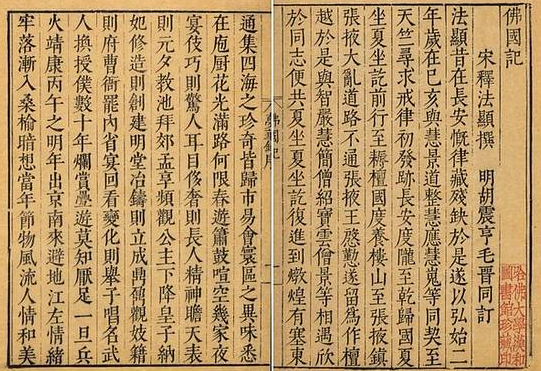 佛國記
宋釋法顯撰 明胡震亨毛晉同訂
法顯昔在長安慨律藏殘缺於是遂以弘始二
年歲在已亥與慧景道整慧應慧嵬等同契至
天竺尋求戒律初發跡長安度隴至乾歸國夏
坐夏坐訖前行至耨檀國度養樓山至張掖鎮
張掖大亂道路不通張掖王慇懃遂留爲作檀
越於是與智嚴慧簡僧紹寶雲僧景等相遇欣
於同志便共夏坐夏坐訖復進到燉煌有塞東
哈佛大學漢和
圖書館珍藏印
通集四海之珍奇皆歸市易會寰區之異味悉
在庖厨花光滿路何限春遊簫鼓喧空幾家夜
宴伎巧則驚人耳目侈奢則長人精神瞻天表
則元夕教池拜郊孟享頻觀公主下降皇子納
妃修造則創建明堂冶鑄則立成鼎鼐觀妓籍
則府曹衙罷内省宴回看變化則舉子唱名武
人換授僕數十年爛賞疊遊莫知厭足一旦兵
火靖康丙午之明年出京南來避地江左情緒
牢落漸入桑榆暗想當年節物風流人情和美